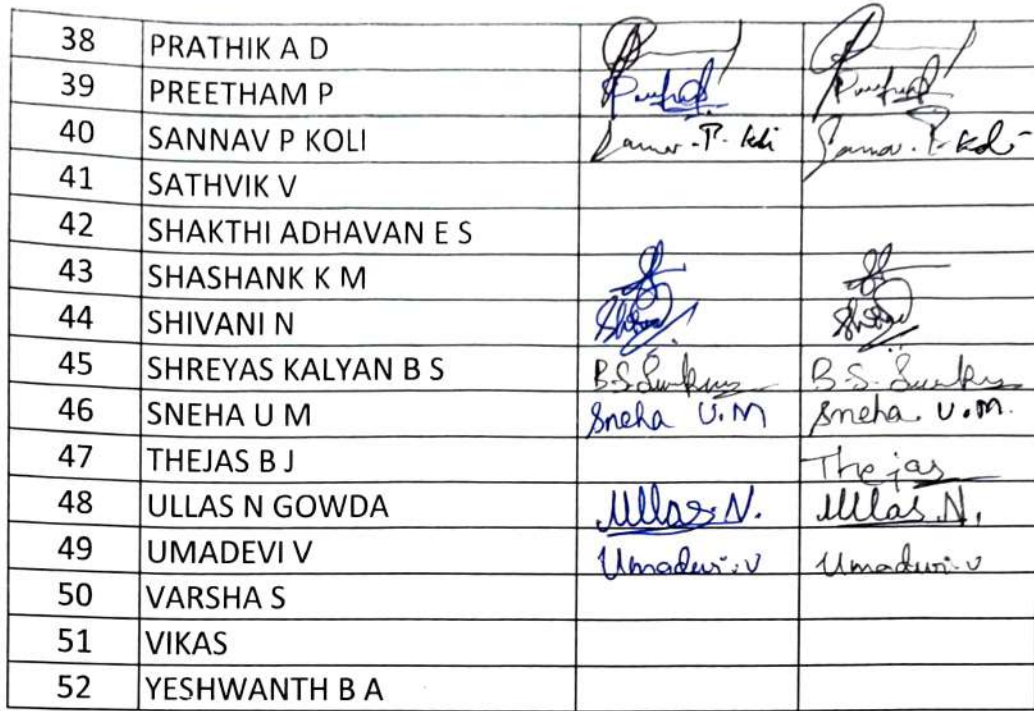 38 PRATHIK A D
39 PREETHAM P
40 SANNAV P KOLI
41 SATHVIK V
42 SHAKTHI ADHAVAN E S
43 SHASHANK K M
44 SHIVANI N
45 SHREYAS KALYAN B S B.S. B.S.
46 SNEHA U M Sneha U.M Sneha U.M.
47 THEJAS B J Thejas
48 ULLAS N GOWDA Ullas N. Ullas N.
49 UMADEVI V Umadevi.v Umadevi.v
50 VARSHA S
51 VIKAS
52 YESHWANTH B A